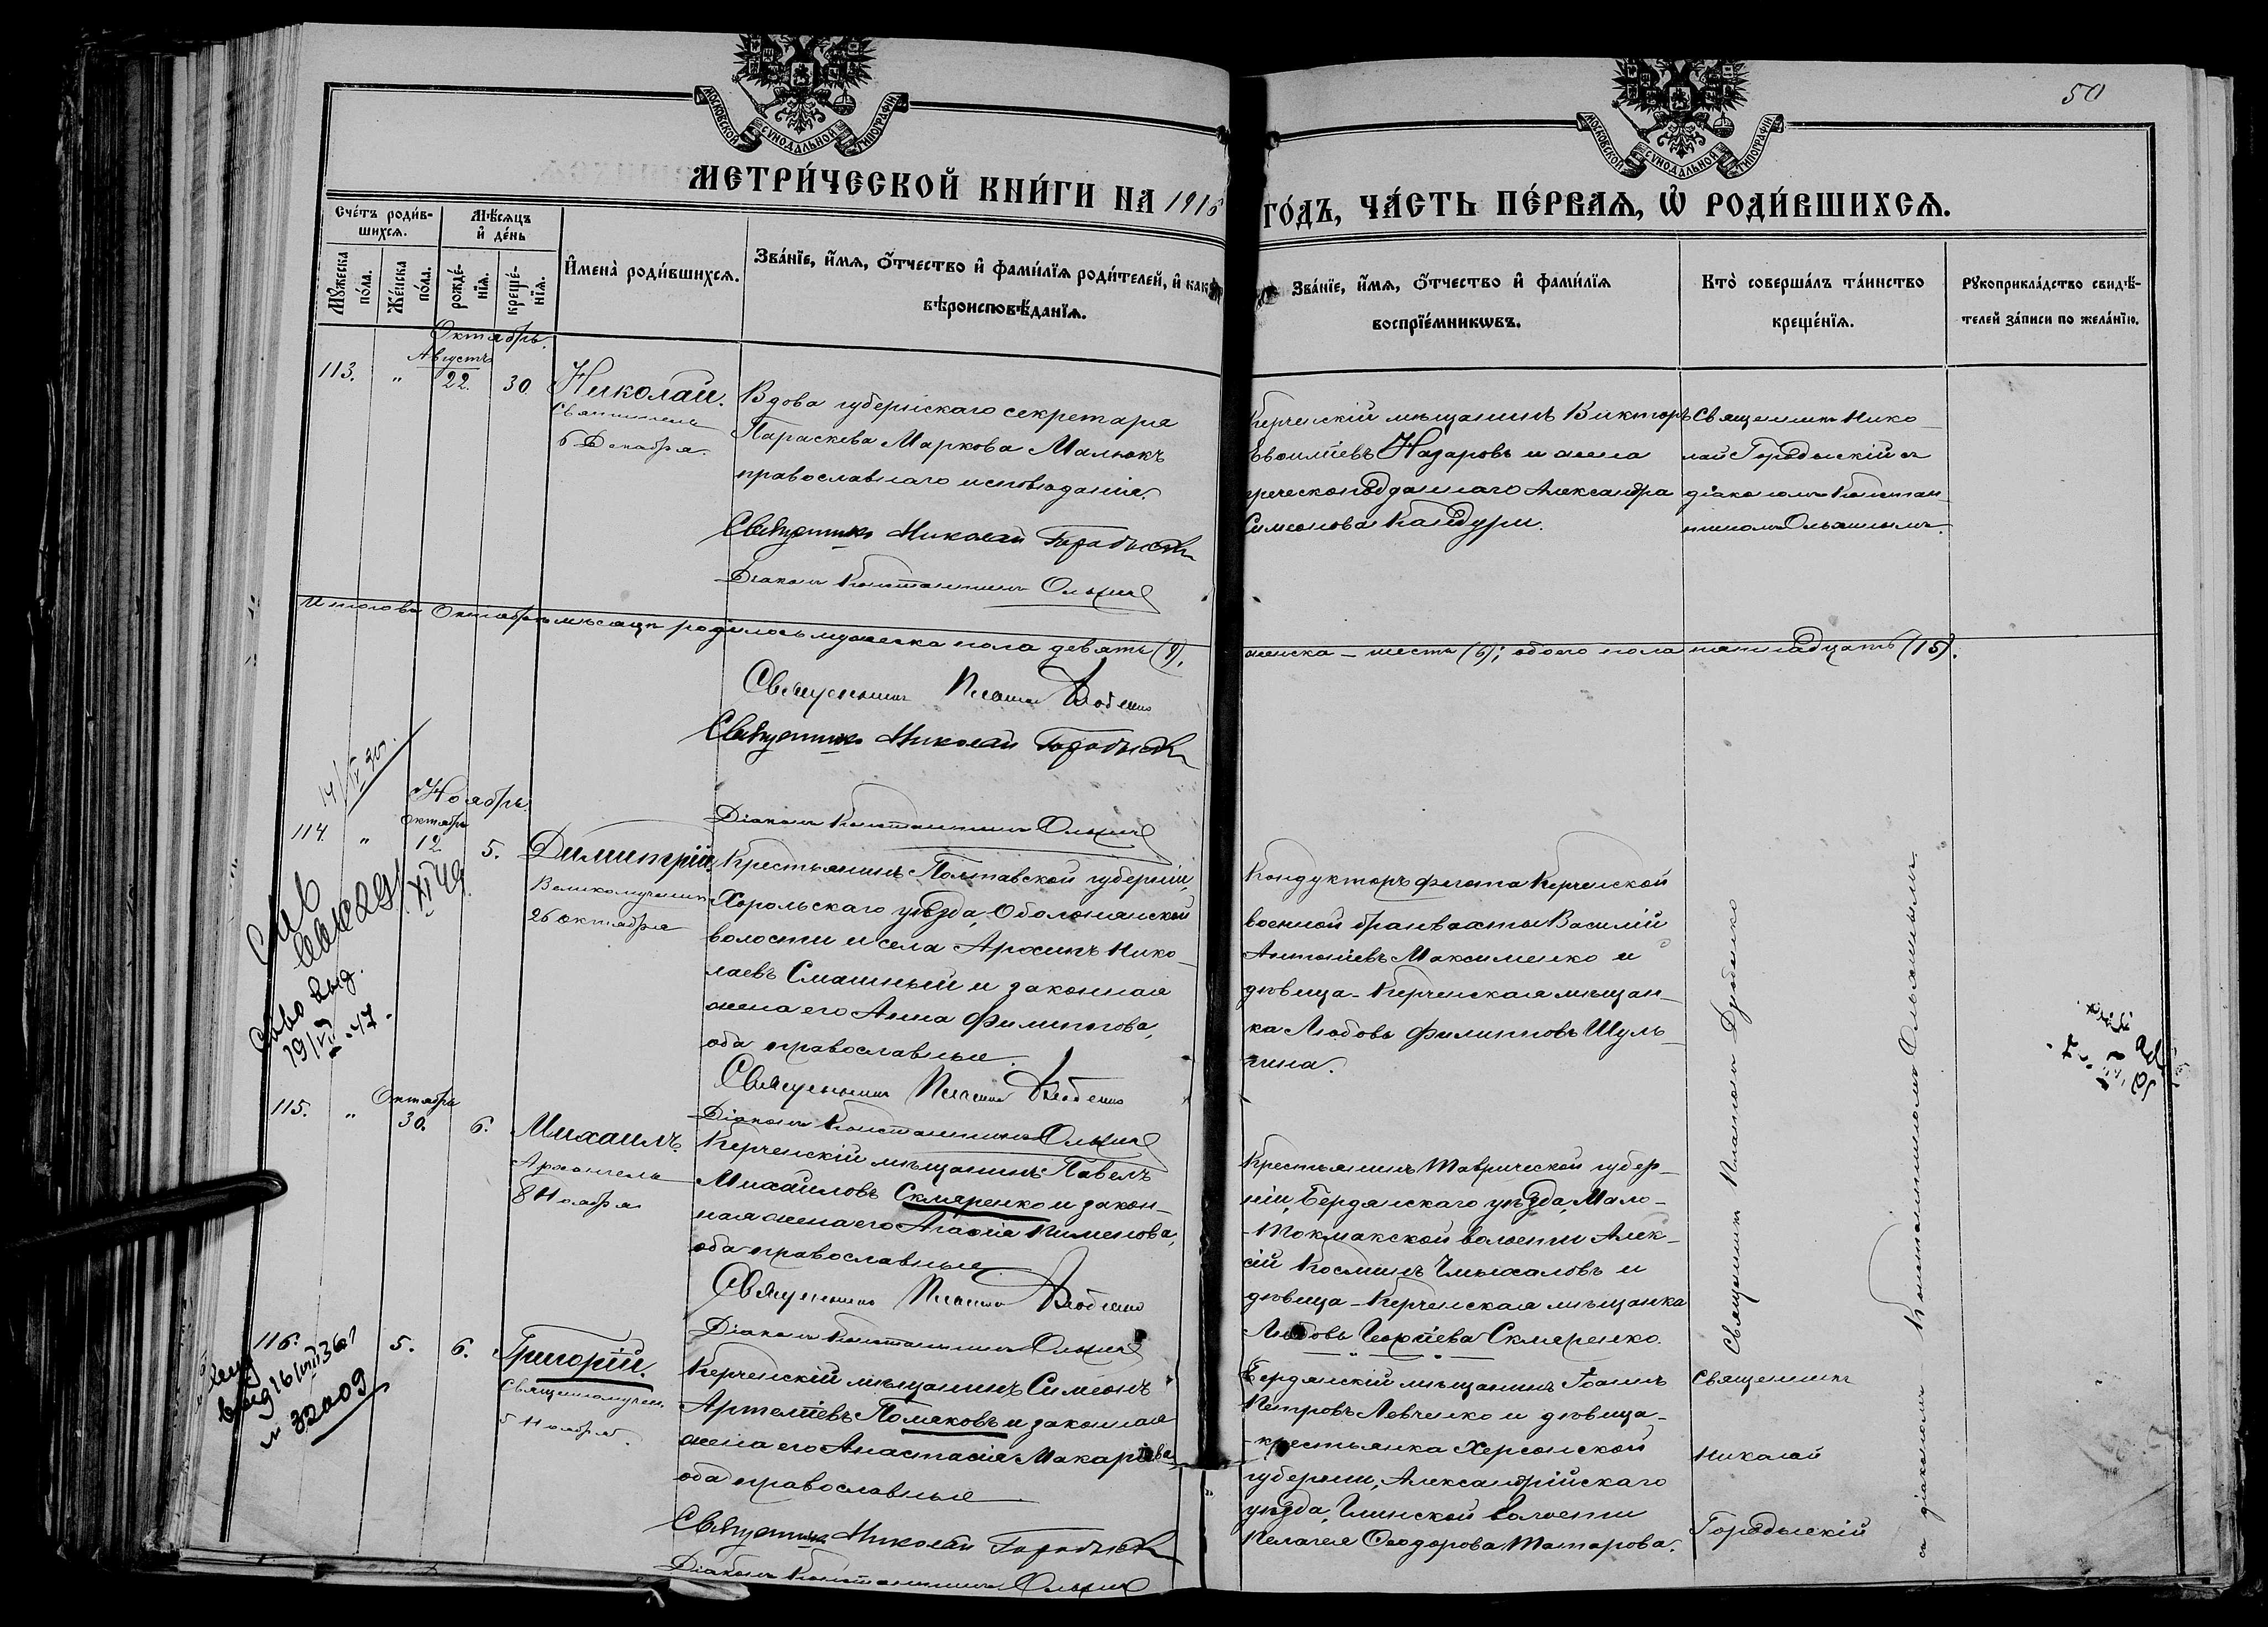 МОСКОВСКОЙ СѴНОДАЛЬНОЙ ТИПОГРАФІИ
МОСКОВСКОЙ СѴНОДАЛЬНОЙ ТИПОГРАФІИ
50
МЕТРИ́ЧЕСКОЙ КНИ́ГИ НА 1916 ГО́ДЪ, ЧА́СТЬ ПЕ́РВАѦ, Ѡ҆ РОДИ́ВШИХСѦ.
Сче́тъ роди́в-
шихсѧ.
Мꙋ́жеска по́ла.
Же́нска по́ла.
Мѣ́сѧцъ
и҆ де́нь
рожде́-
нїѧ.
креще́-
нїѧ.
И҆мена̀ роди́вшихсѧ.
Зва́нїе, и҆́мѧ, ѻ҆́тчество и҆ фами́лїѧ роди́телей, и҆ как
вѣроисповѣ́данїѧ.
Зва́нїе, и҆́мѧ, ѻ҆́тчество и҆ фами́лїѧ
воспрїе́мникѡвъ.
Кто̀ соверша́лъ та́инство
креще́нїѧ.
Рꙋкоприкла́дство свидѣ́-
телей за́писи по жела́нїю.
Октябрь.
Августъ
113. " 22. 30
Николай.
Святитель
6 Декабря.
Вдова губернскаго секретаря
Параскева Маркова Малюкъ
православнаго исповѣданія.
Священникъ Николай Городыскій
Діаконъ Константинъ Ольхинъ
Керченскій мѣщанинъ Викторъ
Евоиліевъ Назаровъ и жена
греческоподданнаго Александра
Симеонова Кандури.
Священникъ Нико-
лай Городыскій съ
діакономъ Констан-
тиномъ Ольхинымъ.
Итого въ Октябрѣ мѣсяцѣ родилось мужеска пола девять (9),
женска - шесть (6); обоего пола пятнадцать (15).
Священникъ Платонъ
Священникъ Николай Городыскій
Діаконъ Константинъ Ольхинъ
Ноябрь.
Октябрь
114. " 12. 5.
Димитрій.
Великомученикъ
26 Октября
Крестьянинъ Полтавской губерніи,
Хорольскаго уѣзда, Оболонянской
волости и села Архипъ Нико-
лаевъ Смашный и законная
жена его Анна Филиппова,
оба православные.
Священникъ Платонъ
Діаконъ Константинъ Ольхинъ
Кондукторъ флота Керченской
военной брандвахты Василій
Антоніевъ Максименко и
дѣвица - Керченская мѣщан-
ка Любовь Филиппова Шуль-
гина.
Октябрь
115. " 30. 6.
Михаилъ.
Архангелъ
8 Ноября
Керченскій мѣщанинъ Павелъ
Михаиловъ Скляренко и закон-
ная жена его Агафія Пименова,
оба православные.
Священникъ Платонъ
Діаконъ Константинъ Ольхинъ
Крестьянинъ Таврической губер-
ніи, Бердянскаго уѣзда, Мало-
-Токмакской волости Алек-
сій Косминъ и
дѣвица - Керченская мѣщанка
Любовь Георгіева Скляренко.
Священникъ Платонъ
съ діакономъ Константиномъ Ольхинымъ.
116. 5. 6.
Григорій.
Священномучен.
5 Ноября.
Керченскій мѣщанинъ Симеонъ
Артеміевъ Поляковъ и законная
жена его Анастасія Макаріева
оба православные
Священникъ Николай Городыскій
Діаконъ Константинъ Ольхинъ
Бердянскій мѣщанинъ Іоаннъ
Петровъ Левченко и дѣвица-
-крестьянка Херсонской
губерніи, Александрійскаго
уѣзда, Глинской волости
Пелагея Ѳеодорова Татарова.
Священникъ
Николай
Городыскій
14/IV 30г.
XI 49
выд.
19/VI-47.
выд 16/VIII 36г
№ 32009